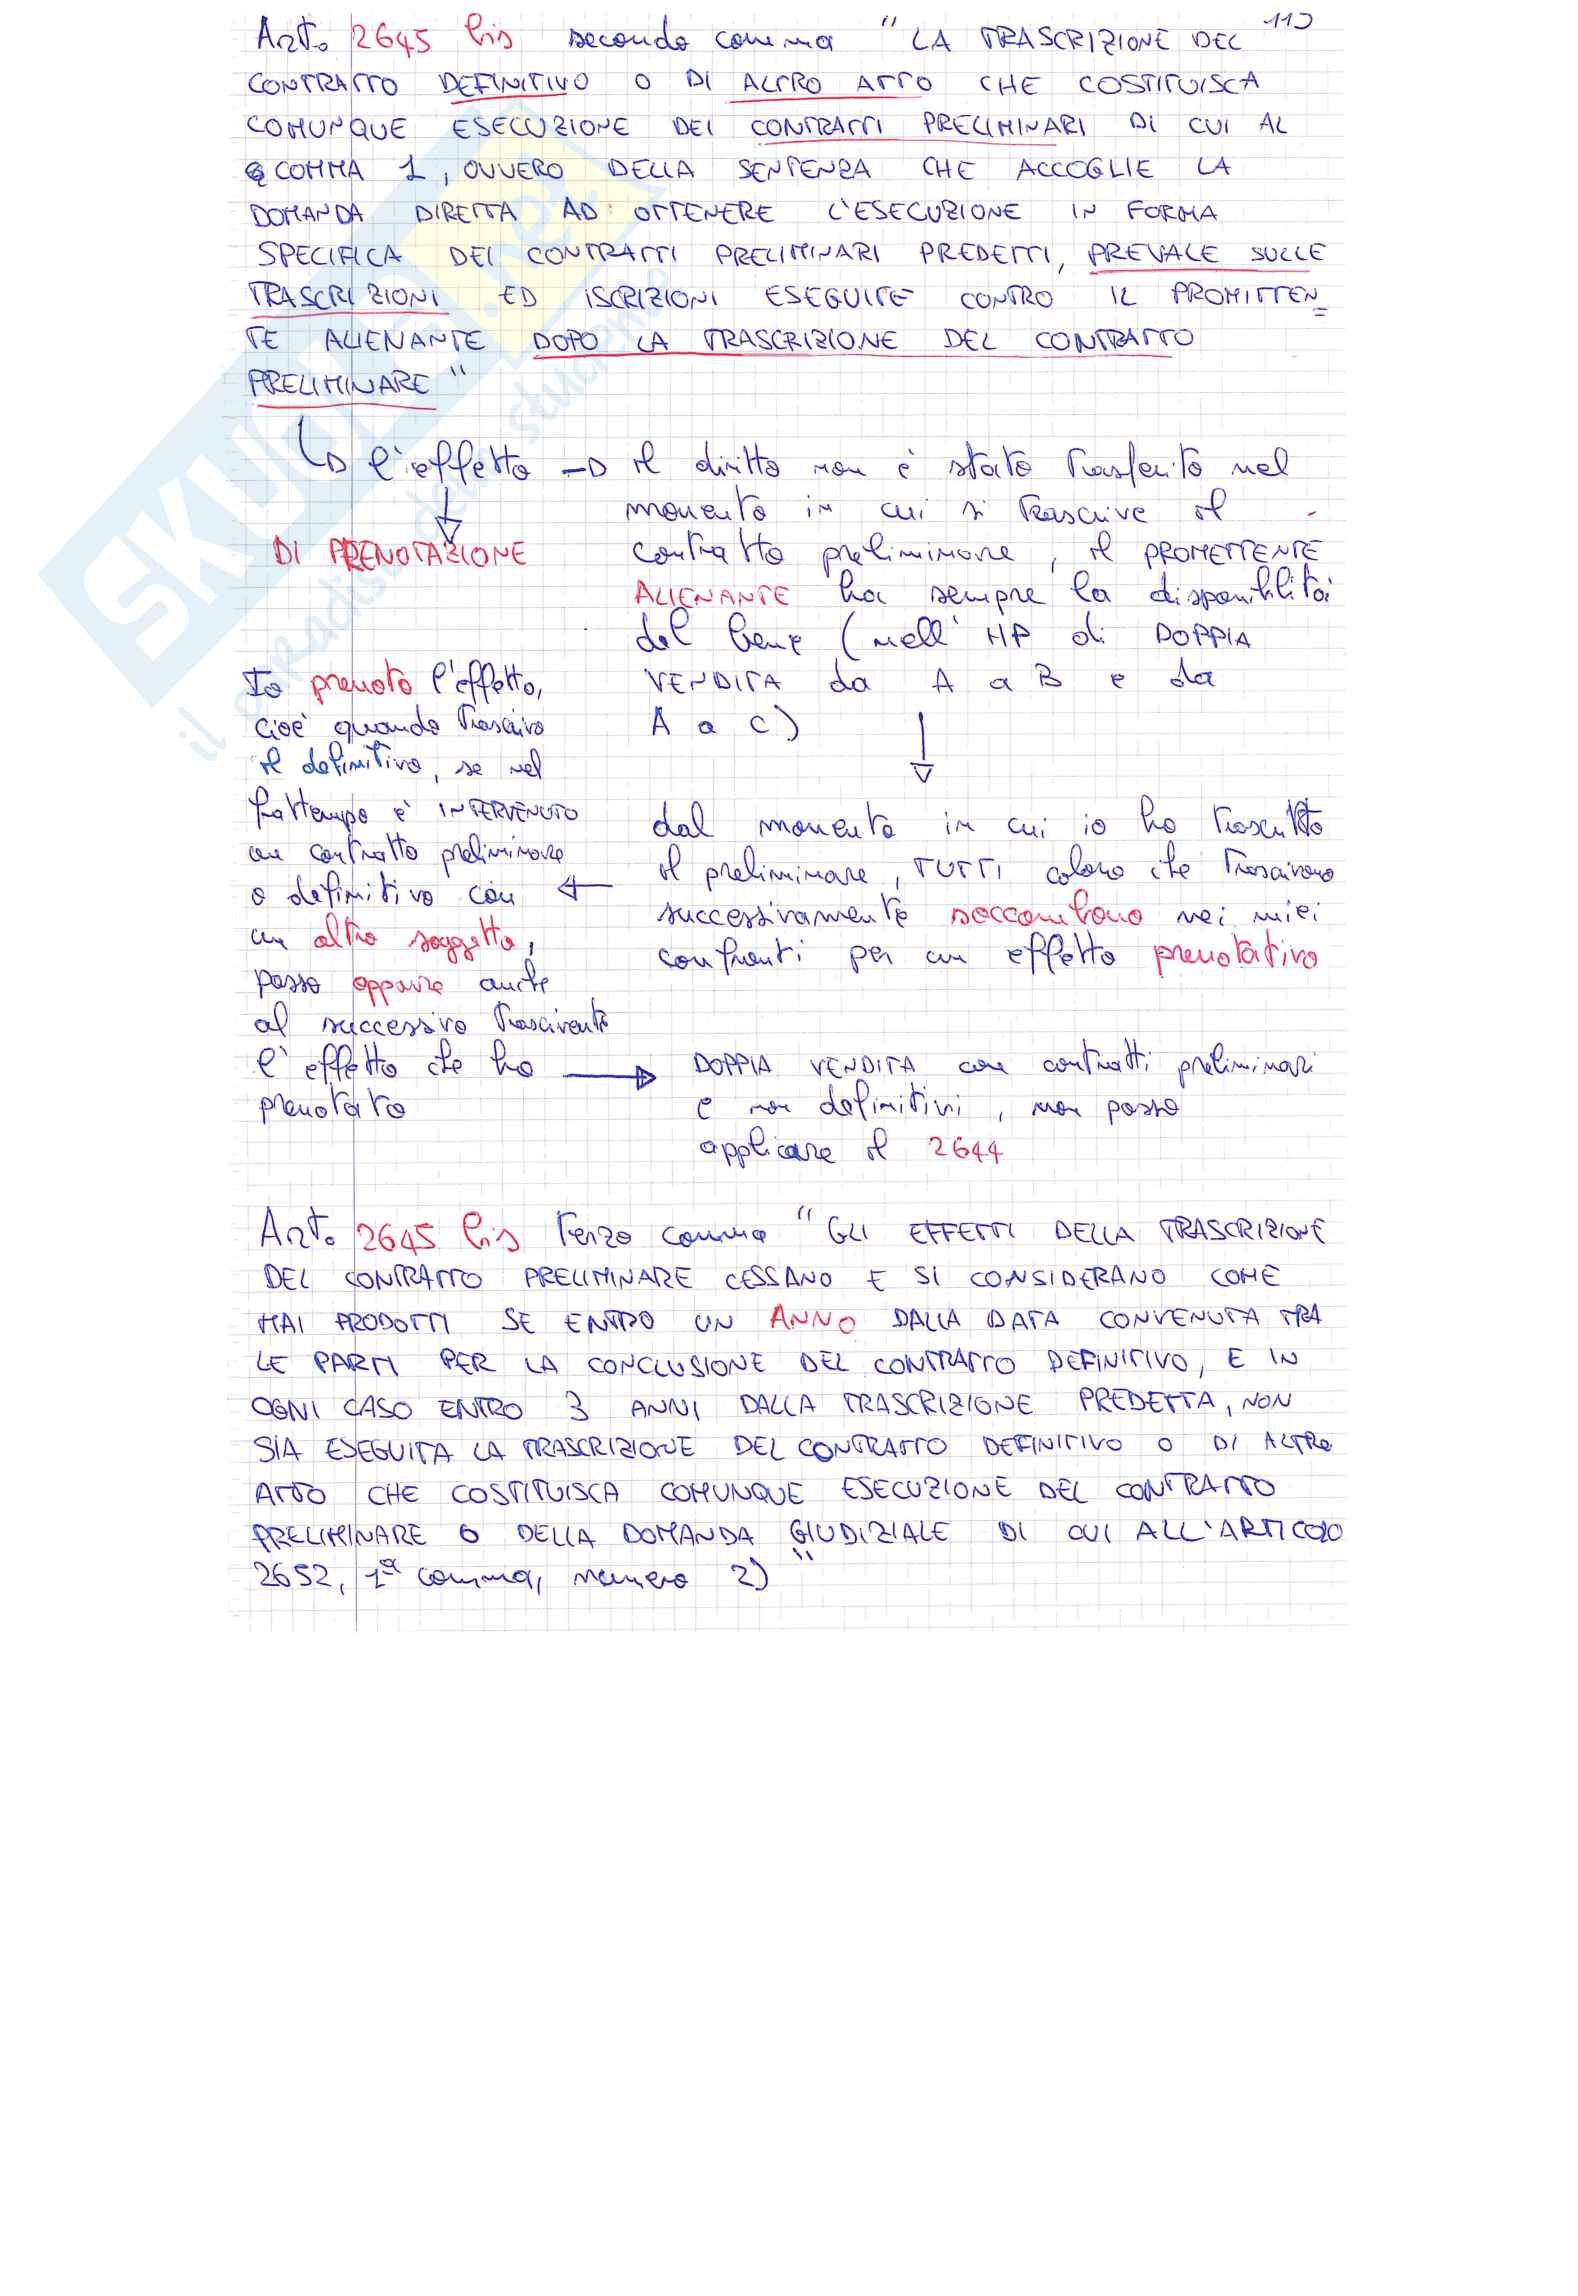 113
Art. 2645 bis secondo comma " LA TRASCRIZIONE DEL
CONTRATTO DEFINITIVO O DI ALTRO ATTO CHE COSTITUISCA
COMUNQUE ESECUZIONE DEI CONTRATTI PRELIMINARI DI CUI AL
COMMA 1, OVVERO DELLA SENTENZA CHE ACCOGLIE LA
DOMANDA DIRETTA AD OTTENERE L'ESECUZIONE IN FORMA
SPECIFICA DEI CONTRATTI PRELIMINARI PREDETTI, PREVALE SULLE
TRASCRIZIONI ED ISCRIZIONI ESEGUITE CONTRO IL PROMITTEN=
TE ALIENANTE DOPO LA TRASCRIZIONE DEL CONTRATTO
PRELIMINARE "
l'effetto
DI PRENOTAZIONE
il diritto non è stato trasferito nel
momento in cui si trascrive il
contratto preliminare, il PROMETTENTE
ALIENANTE ha sempre la disponibilità
del bene (nell' HP di DOPPIA
VENDITA da A a B e da
A a C)
dal momento in cui io ho trascritto
il preliminare, TUTTI coloro che trascrivono
successivamente soccombono nei miei
confronti per un effetto prenotativo
Io prenoto l'effetto,
cioè quando trascrivo
il definitivo, se nel
frattempo è INTERVENUTO
un contratto preliminare
o definitivo con
un altro soggetto,
posso opporre anche
al successivo trascrivente
l'effetto che ho
prenotato
DOPPIA VENDITA con contratti preliminari
e non definitivi, non posso
applicare il 2644
Art. 2645 bis terzo comma " GLI EFFETTI DELLA TRASCRIZIONE
DEL CONTRATTO PRELIMINARE CESSANO E SI CONSIDERANO COME
MAI PRODOTTI SE ENTRO UN ANNO DALLA DATA CONVENUTA TRA
LE PARTI PER LA CONCLUSIONE DEL CONTRATTO DEFINITIVO, E IN
OGNI CASO ENTRO 3 ANNI DALLA TRASCRIZIONE PREDETTA, NON
SIA ESEGUITA LA TRASCRIZIONE DEL CONTRATTO DEFINITIVO O DI ALTRO
ATTO CHE COSTITUISCA COMUNQUE ESECUZIONE DEL CONTRATTO
PRELIMINARE O DELLA DOMANDA GIUDIZIALE DI CUI ALL'ARTICOLO
2652, 1ª comma, numero 2) "
SKUOLA.net
il paradiso dello studente